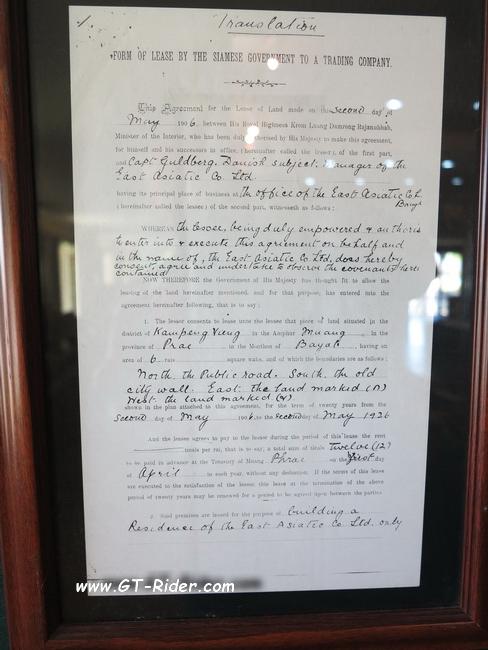 1.
Translation
FORM OF LEASE BY THE SIAMESE GOVERNMENT TO A TRADING COMPANY.
This Agreement for the Lease of Land made on this second day of
May 1906, between His Royal Highness Krom Luang Damrong Rajanubhab,
Minister of the Interior, who has been duly authorised by His Majesty to make this agreement,
for himself and his successors in office, (hereinafter called the lessor), of the first part,
and Capt Guldberg, Danish subject, manager of the
East Asiatic Co Ltd.
having its principal place of business at the office of the East Asiatic Co L.
(hereinafter called the lessee) of the second part, witnesseth as follows:
WHEREAS the lessee, being duly empowered & authoris
to enter into & execute this agreement on behalf and
in the name of, the East Asiatic Co Ltd, does hereby
consent, agree and undertake to observe the covenants here
contained
NOW THEREFORE the Government of His Majesty has thought fit to allow the
leasing of the land hereinafter mentioned, and for that purpose, has entered into the
agreement hereinafter following, that is to say;
1. The lessor consents to lease unto the lessee that piece of land situated in the
district of Kampeng Vieng in the Amphur Muang in the
province of Prae in the Monthon of Bayab, having an
area of 6 rais square wahs, and of which the boundaries are as follows;
North, the Public road. South, the old
city wall. East, the land marked
West, the land marked
shown in the plan attached to this agreement, for the term of twenty years from the
second day of May 1906, to the second day of May 1926
And the lessee agrees to pay to the lessor during the period of this lease the rent
ticals per rai, that is to say, a total sum of ticals twelve (12)
to be paid in advance at the Treasury of Muang Phrae on the first day
of April in each year, without any deduction. If the terms of this lease
are executed to the satisfaction of the lessor, this lease at the termination of the above
period of twenty years may be renewed for a period to be agreed upon between the parties
2. Said premises are leased for the purpose of building a
Residence of the East Asiatic Co Ltd. only
www.GT-Rider.com